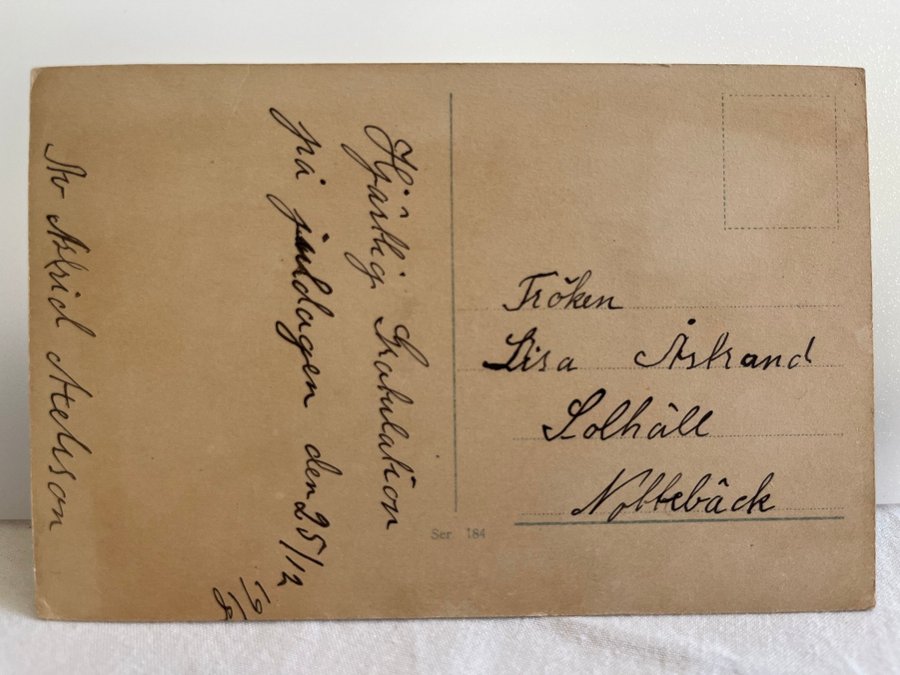 Hjärtlig Gratulation
på juldagen den 25/12
19
Av Astrid Axelsson
Fröken
Lisa Åstrand
Solhäll
Nottebäck
Ser 184